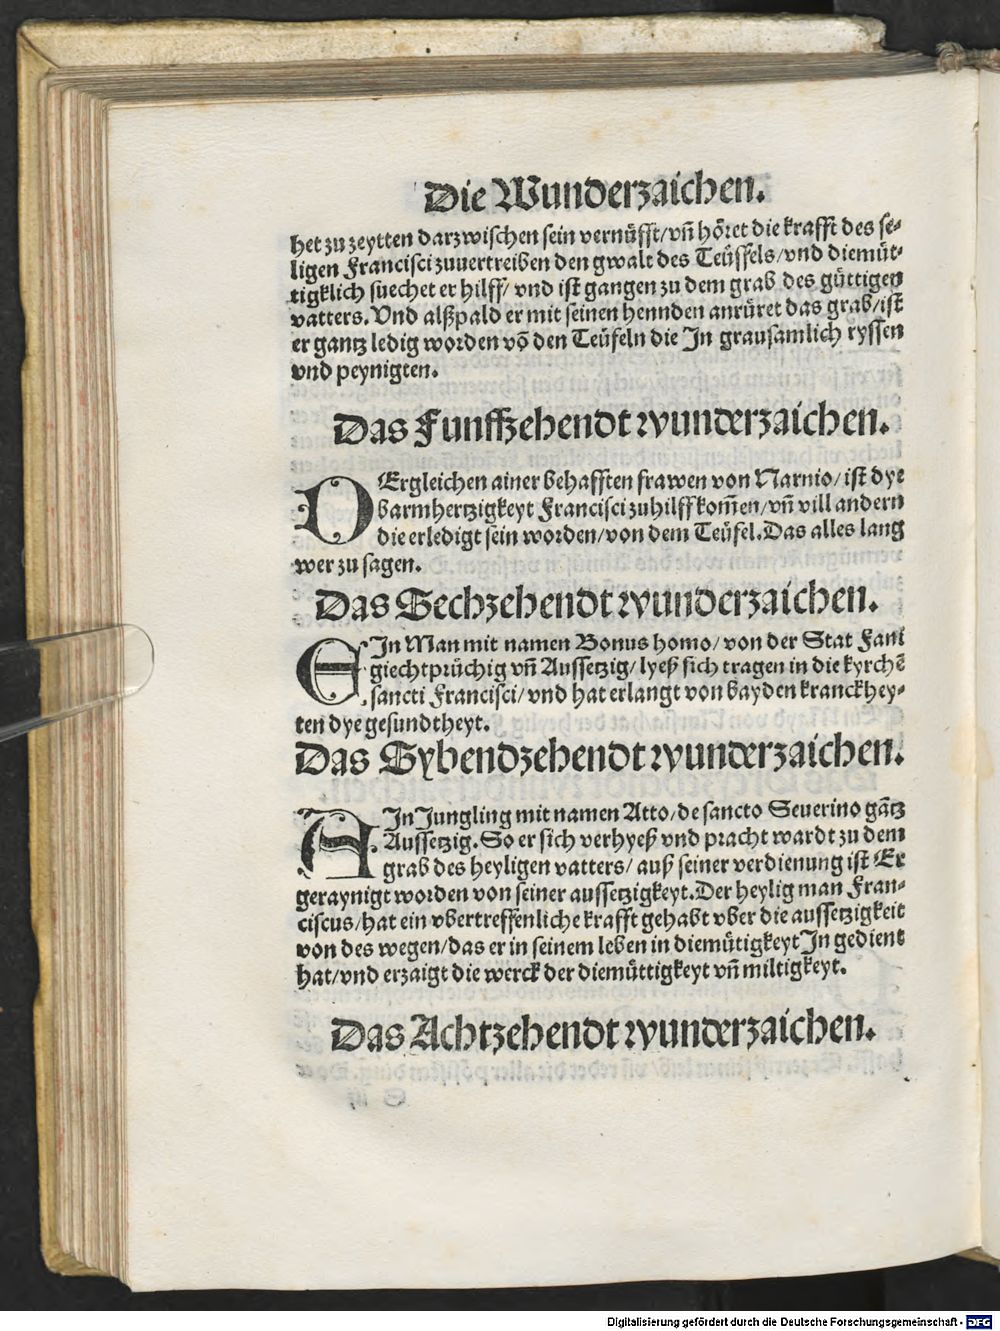 Die Wunderzaichen.
het zu zeytten darzwischen sein vernüfft/vñ höret die krafft des se-
ligen Francisci zuuertreiben den gwalt des Teüffels/vnd diemüt-
tigklich suechet er hilff/ vnd ist gangen zu dem grab des güttigen
vatters. Vnd alßpald er mit seinen hennden anrüret das grab/ist
er gantz ledig worden võ den Teüfeln die In grausamlich ryssen
vnd peynigten.
Das Funffzehendt wunderzaichen.
DErgleichen ainer behafften frawen von Narnio/ist dye
barmhertzigkeyt Francisci zu hilff kom̃en/vñ vill andern
die erledigt sein worden/von dem Teüfel. Das alles lang
wer zu sagen.
Das Sechzehendt wunderzaichen.
EIn Man mit namen Bonus homo/von der Stat Fani
giechtprüchig vñ Aussetzig/lyeß sich tragen in die kyrchẽ
sancti Francisci/vnd hat erlangt von bayden kranckhey-
ten dye gesundtheyt.
Das Sybendzehendt wunderzaichen.
AIn Jungling mit namen Atto/de sancto Seuerino gãtz
Aussetzig. So er sich verhyeß vnd pracht wardt zu dem
grab des heyligen vatters/ auß seiner verdienung ist Er
geraynigt worden von seiner aussetzigkeyt. Der heylig man Fran-
ciscus/hat ein vbertreffenliche krafft gehabt vber die aussetzigkeit
von des wegen/das er in seinem leben in diemütigkeyt In gedient
hat/vnd erzaigt die werck der diemüttigkeyt vñ miltigkeyt.
Das Achtzehendt wunderzaichen.
Digitalisierung gefördert durch die Deutsche Forschungsgemeinschaft - DFG